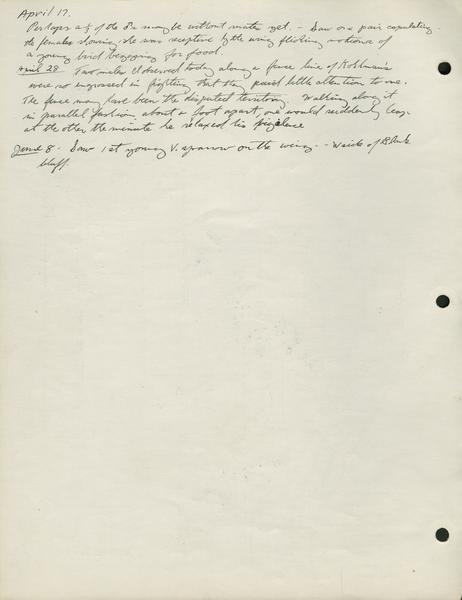 April 17.
Perhaps a ⅓ of the ♂s may be without mates yet. - Saw one pair copulating.
the female showing she was receptive by the wing flicking motions of
a young bird begging for food.
April 28 Two males I observed today along a fence line of
were so engrossed in fighting that they paid little attention to me.
The fence may have been the disputed territory. Walking along it
in parallel fashion, about a foot apart, one would suddenly leap
at the other the minute he relaxed his vigilence
June 8. Saw 1st young V. sparrow on the wing. - W side of
bluff.